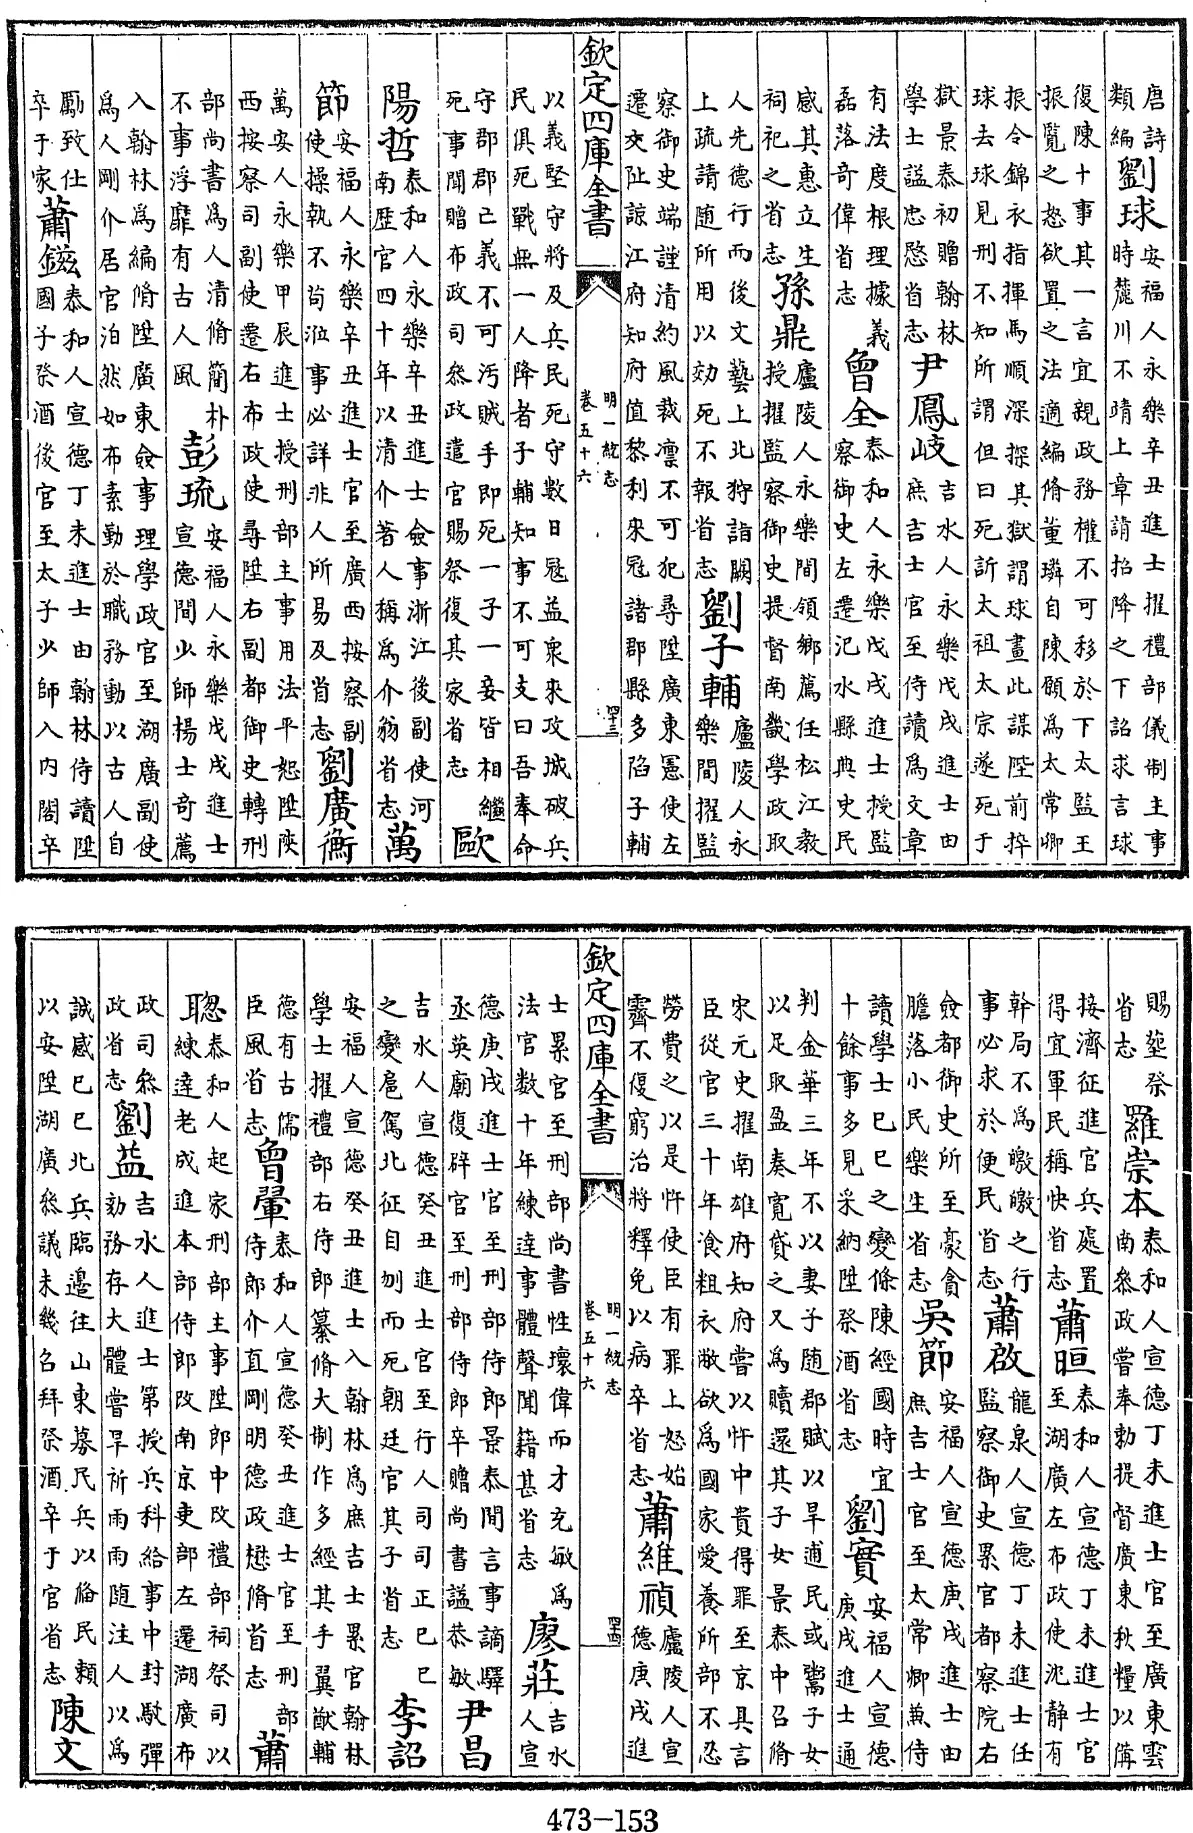 唐詩
類編
劉球
安福人永樂辛丑進士擢禮部儀制主事
時麓川不靖上章請招降之下詔求言球
復陳十事其一言宜親政務權不可移於下太監王
振覽之怒欲置之法適編脩董璘自陳願為太常卿
振令錦衣指揮馬順深探其獄謂球畫此謀陛前捽
球去球見刑不知所謂但曰死訴太祖太宗遂死于
獄景泰初贈翰林
學士謚忠愍省志
尹鳳岐
吉水人永樂戊戌進士由
庶吉士官至侍讀為文章
有法度根理據義
磊落奇偉省志
曾全
泰和人永樂戊戌進士授監
察御史左遷汜水縣典史民
感其惠立生
祠祀之省志
孫鼎
廬陵人永樂間領鄉薦任松江教
授擢監察御史提督南畿學政取
人先德行而後文藝上北狩詣闕
上疏請随所用以効死不報省志
劉子輔
廬陵人永
樂間擢監
察御史端謹清約風裁凜不可犯尋陞廣東憲使左
遷交阯諒江府知府值黎利來冦諸郡縣多陷子輔
欽定四庫全書
明一統志
卷五十六
四三
以義堅守將及兵民死守數日冦益衆來攻城破兵
民俱死戰無一人降者子輔知事不可支曰吾奉命
守郡郡已義不可汚賊手即死一子一妾皆相繼
死事聞贈布政司參政遣官賜祭復其家省志
歐
陽哲
泰和人永樂辛丑進士僉事浙江後副使河
南歴官四十年以清介著人稱為介翁省志
萬
節
安福人永樂辛丑進士官至廣西按察副
使操執不茍涖事必詳非人所易及省志
劉廣衡
萬安人永樂甲辰進士授刑部主事用法平恕陞陜
西按察司副使遷右布政使尋陞右副都御史轉刑
部尚書為人清脩簡朴
不事浮靡有古人風
彭琉
安福人永樂戊戌進士
宣德間少師楊士奇薦
入翰林為編脩陞廣東僉事理學政官至湖廣副使
為人剛介居官泊然如布素勤於職務動以古人自
勵致仕
卒于家
蕭鎡
泰和人宣德丁未進士由翰林侍讀陞
國子祭酒後官至太子少師入内閣卒
賜塟祭
省志
羅崇本
泰和人宣德丁未進士官至廣東雲
南叅政嘗奉勅提督廣東秋糧以備
接濟征進官兵處置
得宜軍民稱快省志
蕭晅
泰和人宣德丁未進士官
至湖廣左布政使沈静有
幹局不為皦皦之行
事必求於便民省志
蕭啟
龍泉人宣德丁未進士任
監察御史累官都察院右
僉都御史所至豪貪
膽落小民樂生省志
吳節
安福人宣德庚戌進士由
庶吉士官至太常卿兼侍
讀學士己巳之變條陳經國時宜
十餘事多見采納陞祭酒省志
劉實
安福人宣德
庚戌進士通
判金華三年不以妻子随郡賦以旱逋民或鬻子女
以足取盈奏寛貸之又為贖還其子女景泰中召脩
宋元史擢南雄府知府嘗以忤中貴得罪至京具言
臣從官三十年飡粗衣敝欲為國家愛養所部不忍
勞費之以是忤使臣有罪上怒始
霽不復窮治將釋免以病卒省志
蕭維禎
廬陵人宣
德庚戌進
欽定四庫全書
明一統志
卷五十六
四四
士累官至刑部尚書性瓌偉而才充敏為
法官数十年練逹事體聲聞籍甚省志
廖莊
吉水
人宣
德庚戌進士官至刑部侍郎景泰間言事謫驛
丞英廟復辟官至刑部侍郎卒贈尚書謚恭敏
尹昌
吉水人宣德癸丑進士官至行人司司正己巳
之變扈駕北征自刎而死朝廷官其子省志
李詔
安福人宣德癸丑進士入翰林為庶吉士累官翰林
學士擢禮部右侍郎纂脩大制作多經其手翼猷輔
德有古儒
臣風省志
曾翬
泰和人宣德癸丑進士官至刑部
侍郎介直剛明德政懋脩省志
蕭
聰
泰和人起家刑部主事陞郎中改禮部祠祭司以
練逹老成進本部侍郎改南京吏部左遷湖廣布
政司叅
政省志
劉益
吉水人進士第授兵科給事中封駁彈
劾務存大體嘗旱祈雨雨随注人以為
誠感己巳北兵臨邉往山東募民兵以備民賴
以安陞湖廣叅議未幾召拜祭酒卒于官省志
陳文
473-153